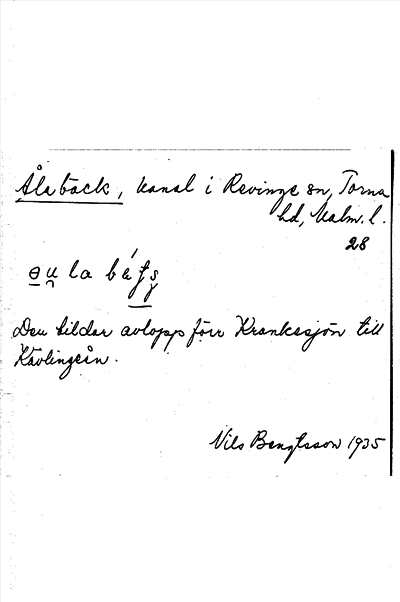 Ålabäck, kanal i Revinge sn, Torna
hd, Malm. l.
28
Den bildar avlopp för Krankesjön till
Kävlingeån.
Nils Bengtsson 1935